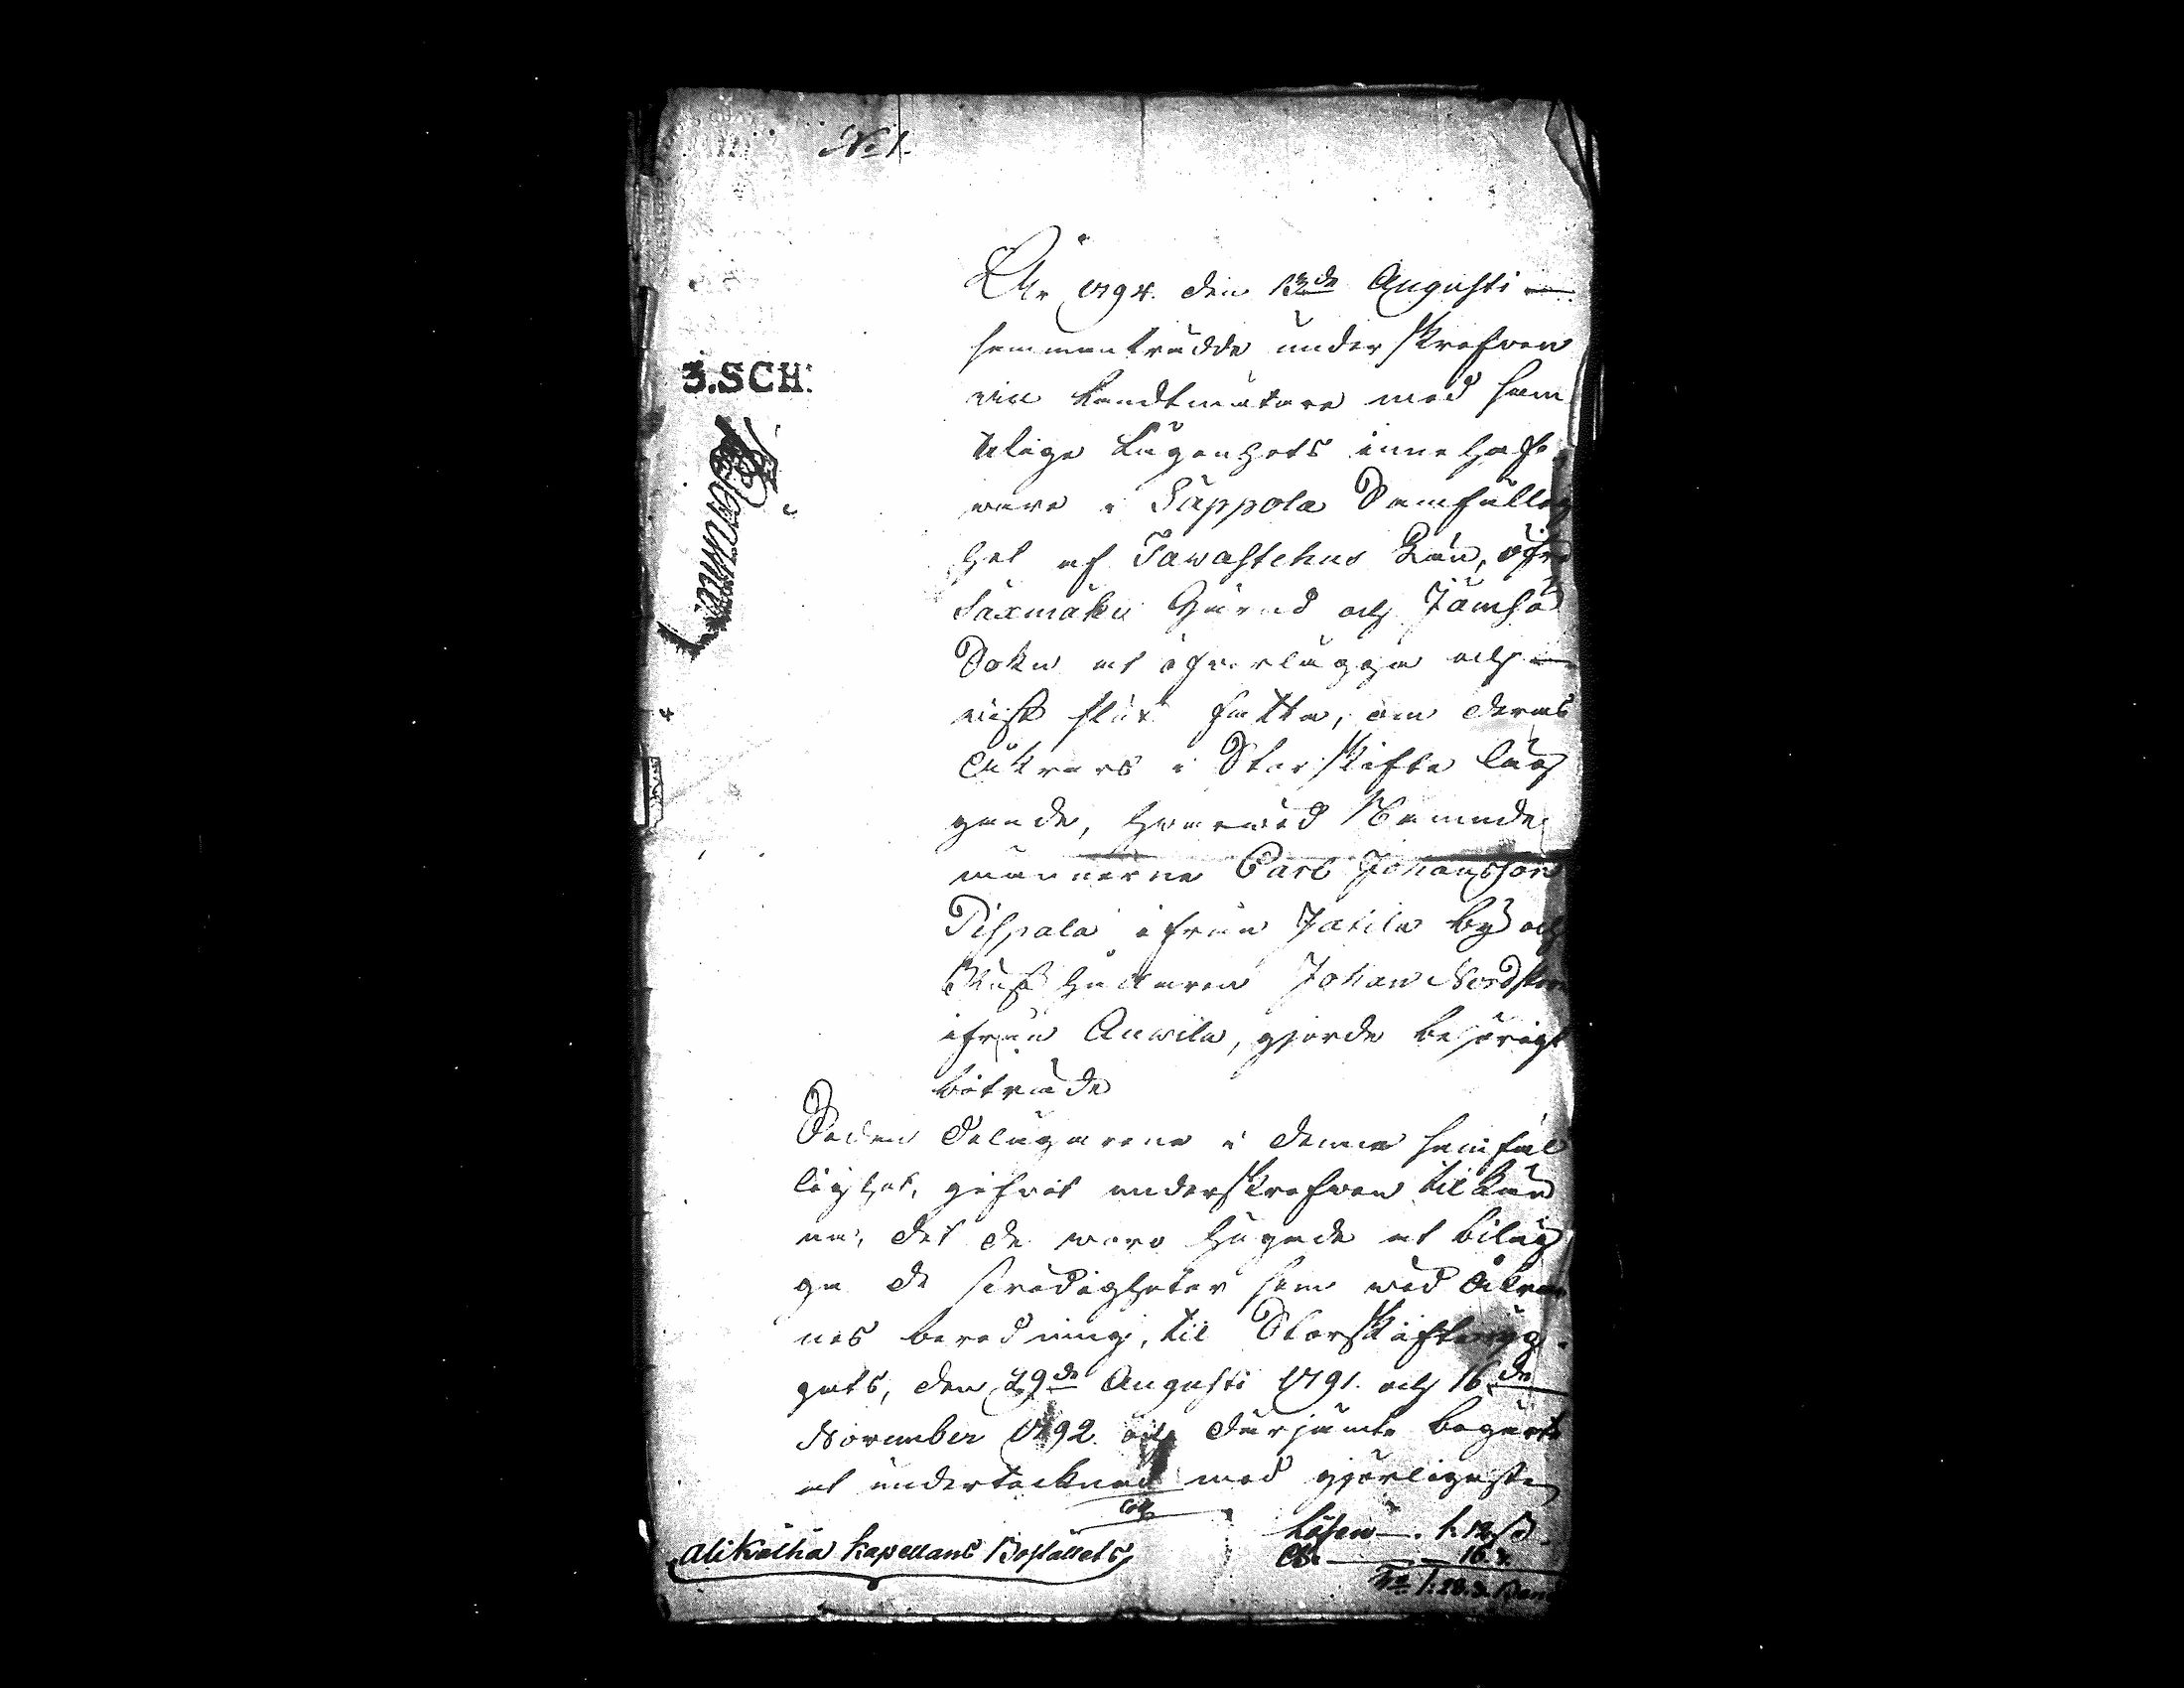 No 1.
År 1794. den 13de Augusti
sammanträdde underskrefven
vice Landtmätare med sam
telige Lägenhets innehaf-
vare i Säppola Samfällig
het af Tawastehus Län, öfre
Säxmäki Härad och Jämsä
Sokn at öfverlägga och
vist slut fatta, om deras
Åkrars i Storskifte läg
gande, hvarvid Nämnde
männerne Carl Johansson
Pispala ifrån Jatila by och
Rusthållaren Johan Nordst
ifrån Auvila, gjorde behörigt
biträde
Sedan Delägarene i denna samfäl
lighet, gifvit underskrefven tilkän
na, det de voro hugade at biläg
ga de stridigheter som vid Åkrar
nes beredning, til Storskifte yp-
pats, den 29de Augusti 1791. och 16de
November 1792. och därjämte begärt
at undertecknad med görligaste
3.SCH.
Alikälhä Kapellans Boställets
Lösen —. 1:12.
Ch. — 16.